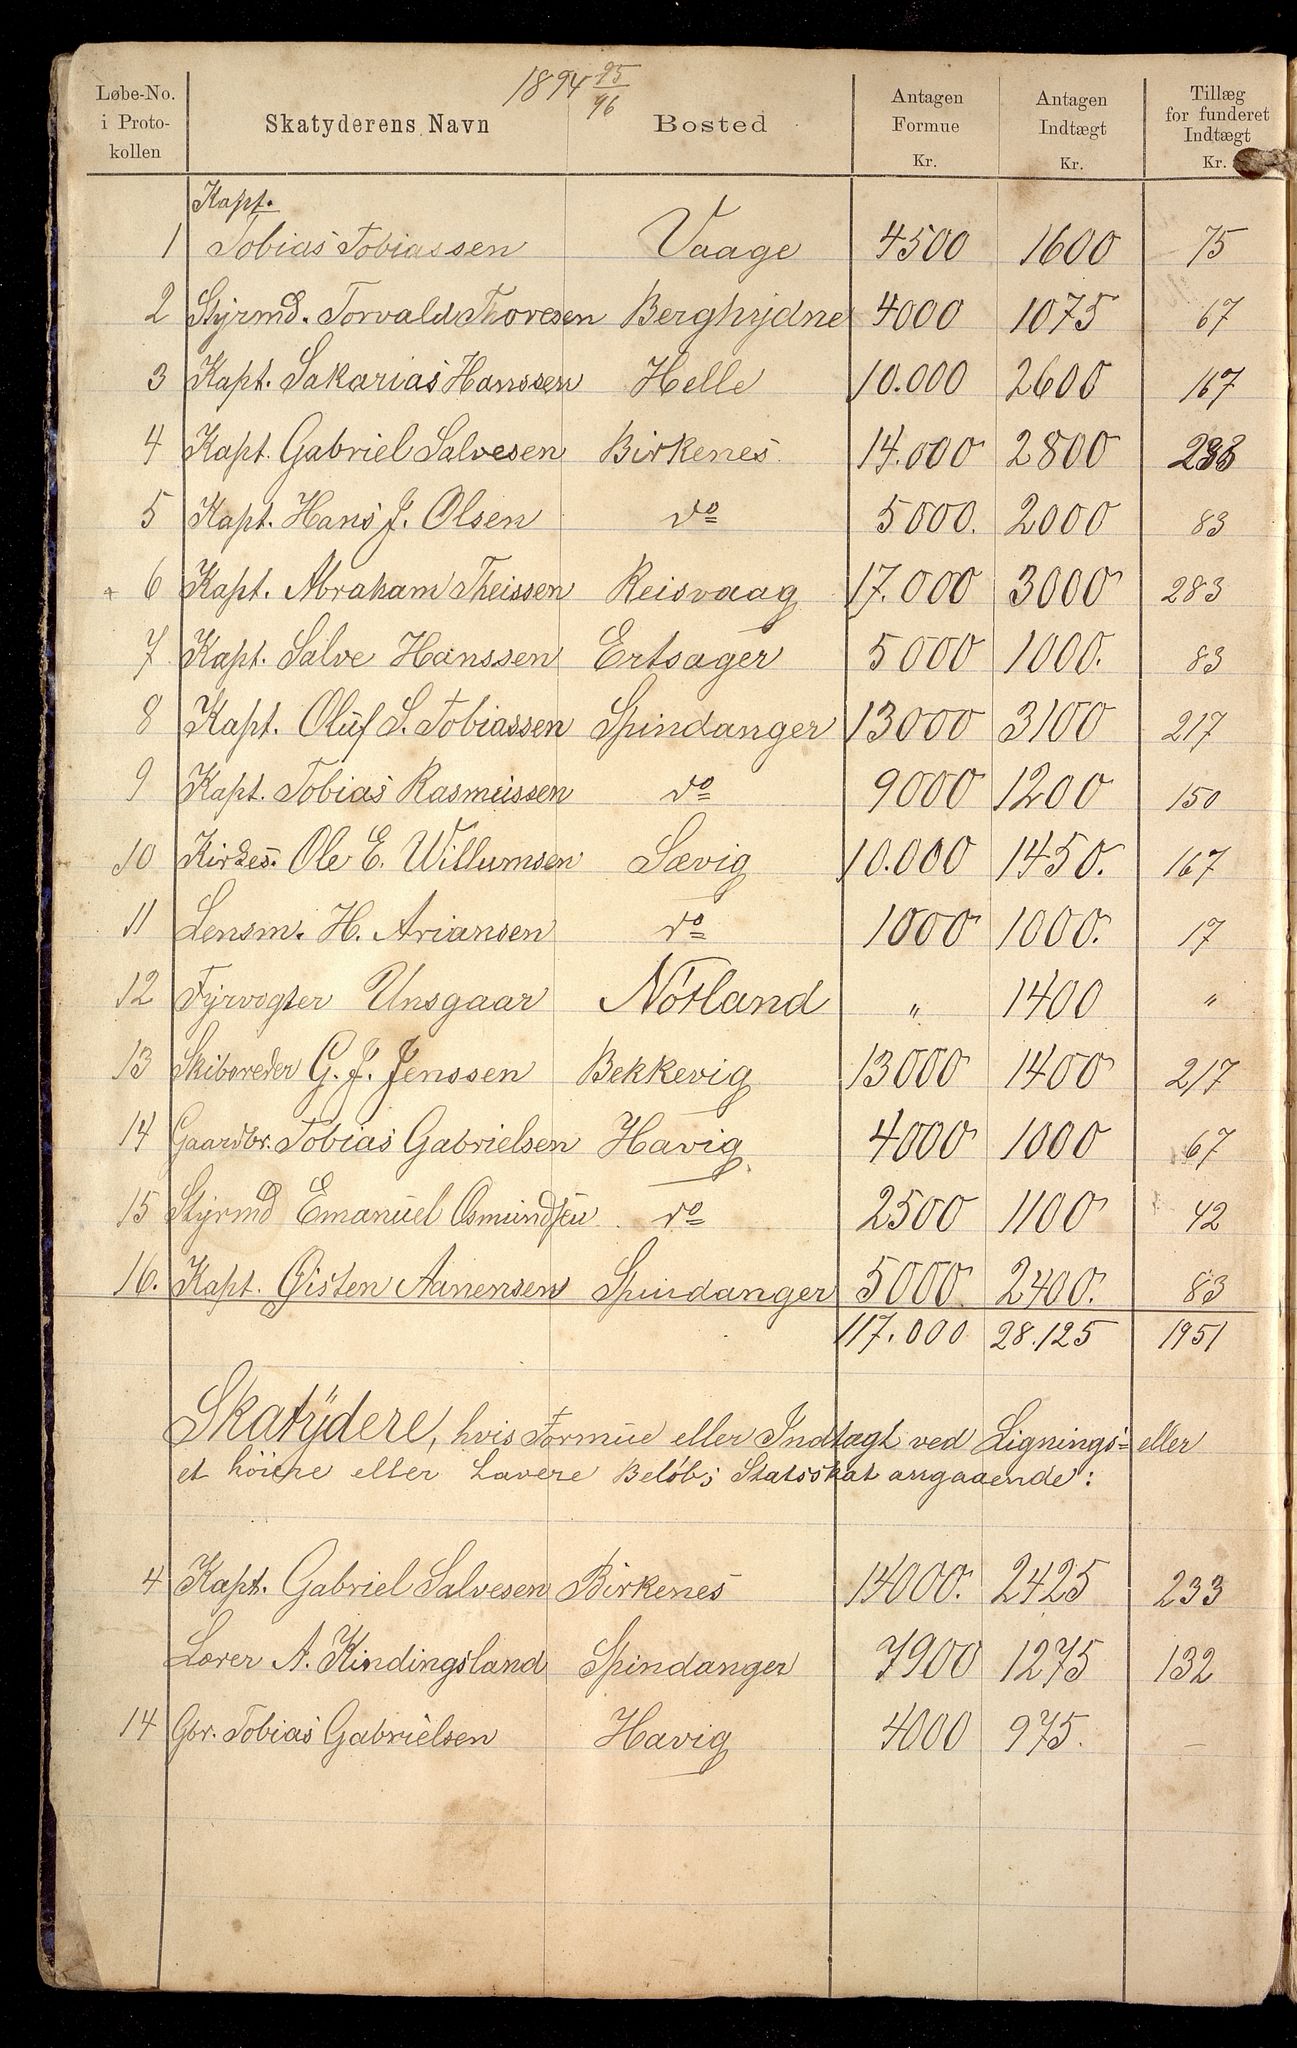 1894 95/96
Løbe-No. i Proto- kollen | Skatyderens Navn | Bosted | Antagen Formue Kr. | Antagen Indtægt Kr. | Tillæg for funderet Indtægt Kr.
Kapt.
1 Tobias Tobiassen Vaage 4500 1600 75
2 Styrmd. Torvald Thoresen Berghydne 4000 1075 67
3 Kapt. Sakarias Hanssen Helle 10.000 2600 167
4 Kapt. Gabriel Salvesen Birkenes 14.000 2800 233
5 Kapt. Hans J. Olsen do 5000. 2000 83
6 Kapt. Abraham Theissen Reisvaag 17.000 3000 283
7 Kapt. Salve Hanssen Ertsager 5000 1000. 83
8 Kapt. Oluf S. Tobiassen Spindanger 13000 3100 217
9 Kapt. Tobias Rasmussen do 9000 1200 150
10 Kirkes. Ole E. Willumsen Sævig 10.000 1450. 167
11 Lensm. H. Ariansen do 1000 1000. 17
12 Fyrvogter Unsgaar Nörland „ 1400 „
13 Skibsreder G. J. Jenssen Bekkevig 13000 1400 217
14 Gaardbr. Tobias Gabrielsen Havig 4000 1000 67
15 Styrmd Emanuel Osmundsen do 2500 1100 42
16. Kapt. Øisten Aanensen Spindanger 5000. 2400. 83
117.000 28.125 1951
Skatÿdere, hvis Formue eller Indtægt ved Lignings= eller
et höiere eller Lavere Belöb; Statsskat angaaende:
4 Kapt. Gabriel Salvesen Birkenes 14000. 2425 233
Lærer A. Kindingsland Spindanger 7900 1275 132
14 Gbr. Tobias Gabrielsen Havig 4000 975. —